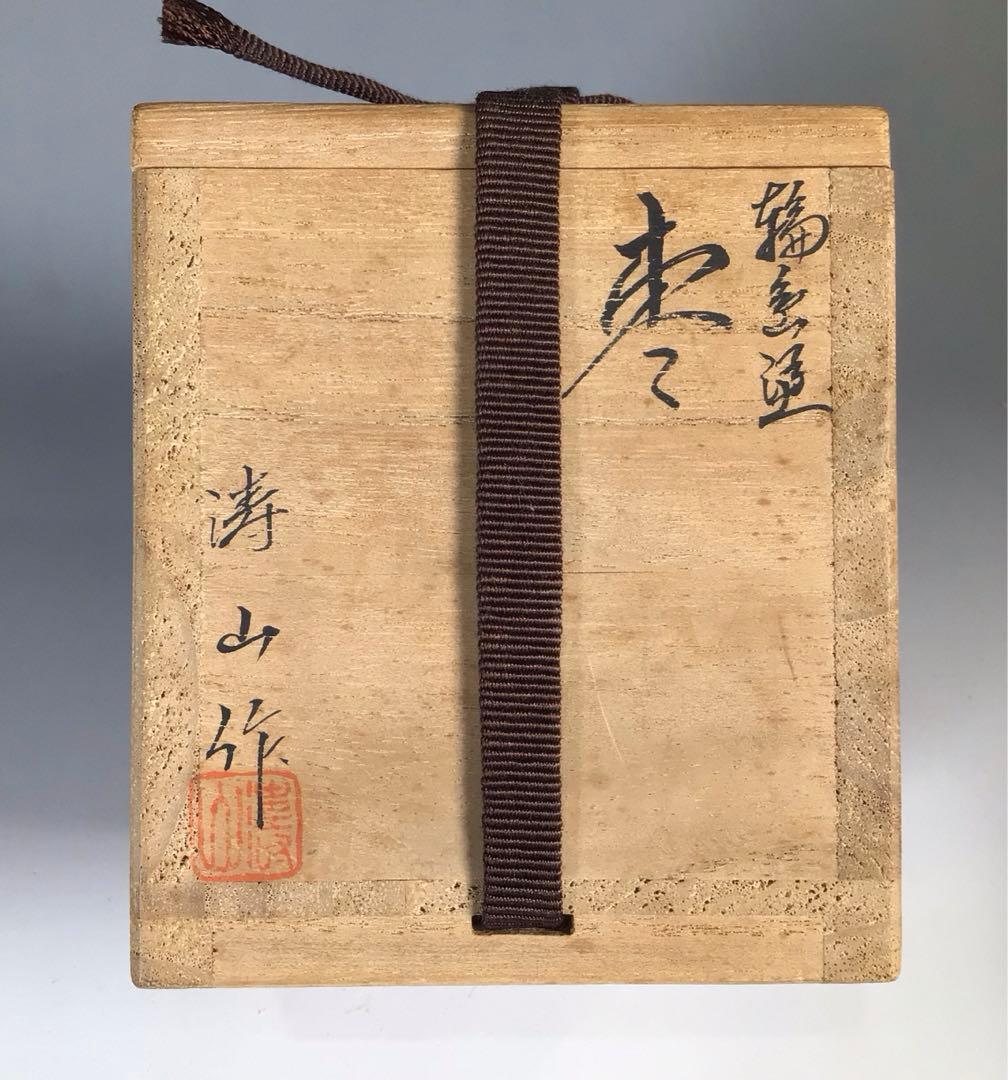 輪島塗
棗
涛山作